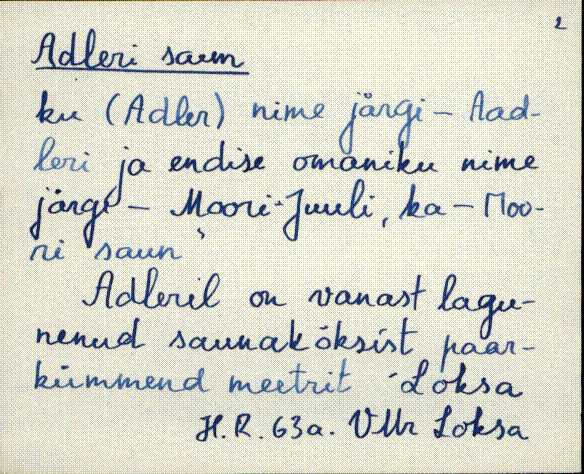 2
Adleri saun
ku (Adler) nime järgi – Aad-
leri ja endise omaniku nime
järgi – Moori-Juuli, ka – Moo-
ri saun
Adleril on vanast lagu-
nenud saunakõksist paar-
kümmend meetrit Loksa
H.R. 63a. Loksa